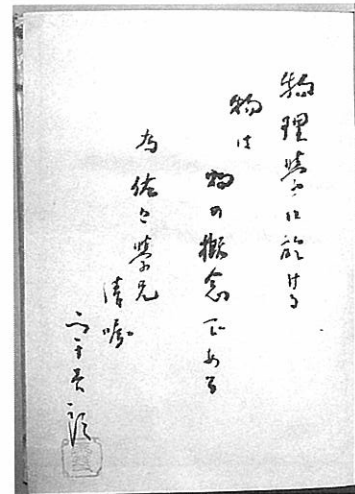 物理學に於ける
物は
物の概念である
為佐々學兄
清囑